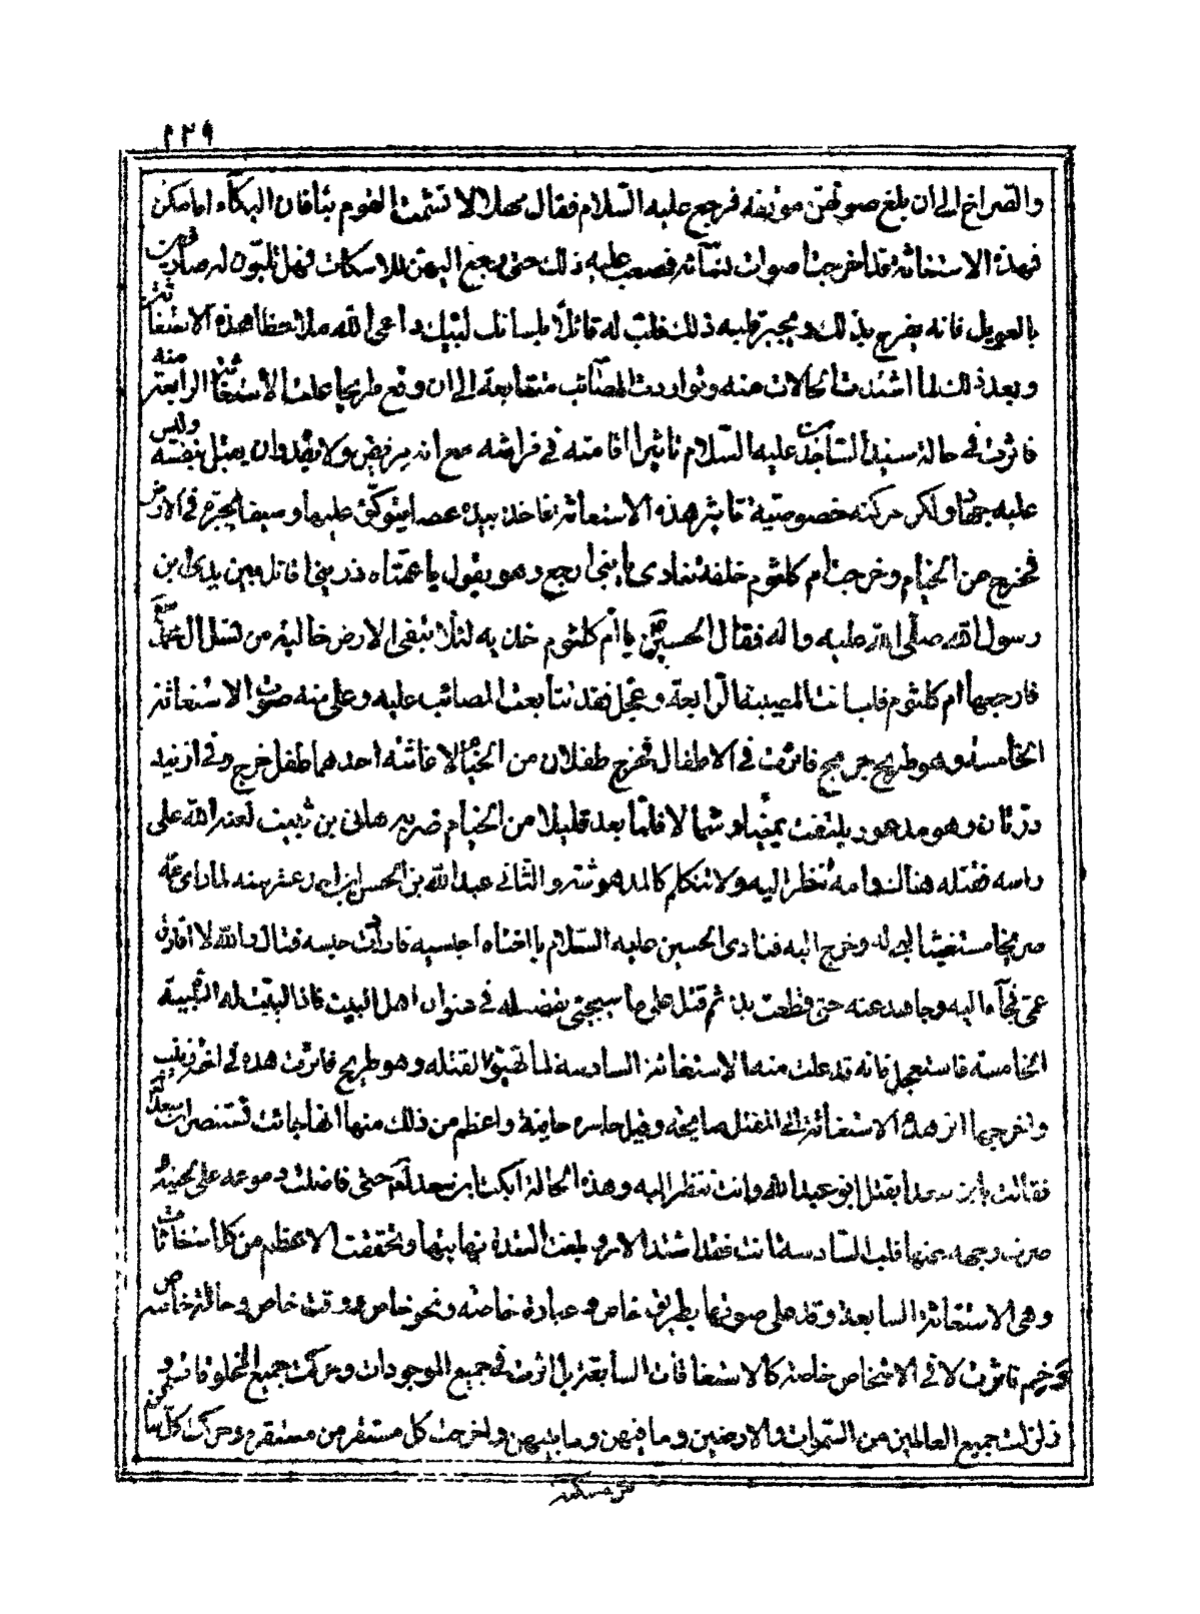 ٢٢٩
والصراخ الى ان بلغ صوتهن موقفه فرجع عليه السلام فقال مهلا لا تشمت القوم بنا فان البكاء امامكن
فهذة الاستغاثة قد اخرجت اصوات لنسائه فصعب عليه ذلك حتى رجع اليهن للاسكات فهل تلبون له صارخين
بالعويل فانه يفرح بذلك ويجبر قلبه ذلك فلب له قائلا بلسانك لبيك داعى الله ملاحظا هذه الاستغاثة
وبعد ذلك لما اشتدت الحالات منه وتواردت المصائب متتابعة الى ان وقع طريحا علت الاستغاثة الرابعة منه
فاثرت في حالة سيد الساجدين عليه السلام تاثيرا اقامته في فراشه مع انه مريض ولا يقدر ان يعتل بنفسه وليس
عليه جهاد ولكن حركته خصوصية تاثير هذه الاستغاثة فاخذ بيده عصا يتوكؤ عليها وسيفا يجره في الارض
فخرج من الخيام وخرجت ام كلثوم خلفه تنادى يا بنى ارجع وهو يقول يا عمتاه ذرينى اقاتل بين يدى ابن
رسول الله صلى الله عليه واله فقال الحسين يا ام كلثوم خذيه لئلا تبقى الارض خالية من نسل ال محمد
فارجعها ام كلثوم فلب انت المصيبة الرابعة وعجل فقد تتابعت المصائب عليه وعلى منه صوت الاستغاثة
الخامسة وهو طريح جريح فاثرت في الاطفال فخرج طفلان من الخباء لاغاثته احدهما طفل خرج وفى اذنيه
درتان وهو مذعور يلتفت يمينا وشمالا فلما بعد قليلا من الخيام ضربه هانى بن ثبيت لعنه الله على
راسه فقتله هناك وامه تنظر اليه ولا تتكلم كالمدهوشة والثانى عبدالله بن الحسن لما راى عمه
صريخا مستغيثا وخرج اليه فنادى الحسين عليه السلام يا اختاه احبسيه فارادت حبسه فقال والله لا افارق
عمى فجاء اليه وجاهد عنه حتى قطعت يده ثم قتل على ما سيجئ بفضله في عنوان اهل البيت فاذا لبيت له التلبية
الخامسة فاستعجل فانه قد علت منه الاستغاثة السادسة لما تهيؤا لقتله وهو طريح فاثرت هذه في اخته زينب
واخرجها اثر هذه الاستغاثة الى المقتل صايحة وقيل حاسرة حافية واعظم من ذلك منها انها جائت تستنصر ابن سعد
فقالت يا بن سعد ايقتل ابو عبد الله وانت تنظر اليه وهذه الحالة ابكت ابن سعد لعنه حتى فاضلت دموعه على لحيته
صرف وجهه عنها فلب السادسة انت فقد اشتد الامر وبلغت الشدة نهايتها وتحققت الاعظم من كل استغاثاته
وهى الاستغاثة السابعة وقد على صوته بها بطريق خاص وعبادة خاصة ونحو خاص ووقت خاص وحالة خاصة
فاثرت لا في الاشخاص خاصة كالاستغاثات السابقة بل اثرت في جميع الموجودات وحركت جميع المخلوقات و
زلزلت جميع العالمين من السموات والارضين وما فيهن وما بينهن واخرجت كل مستقر من مستقره وحركت كل ساكن